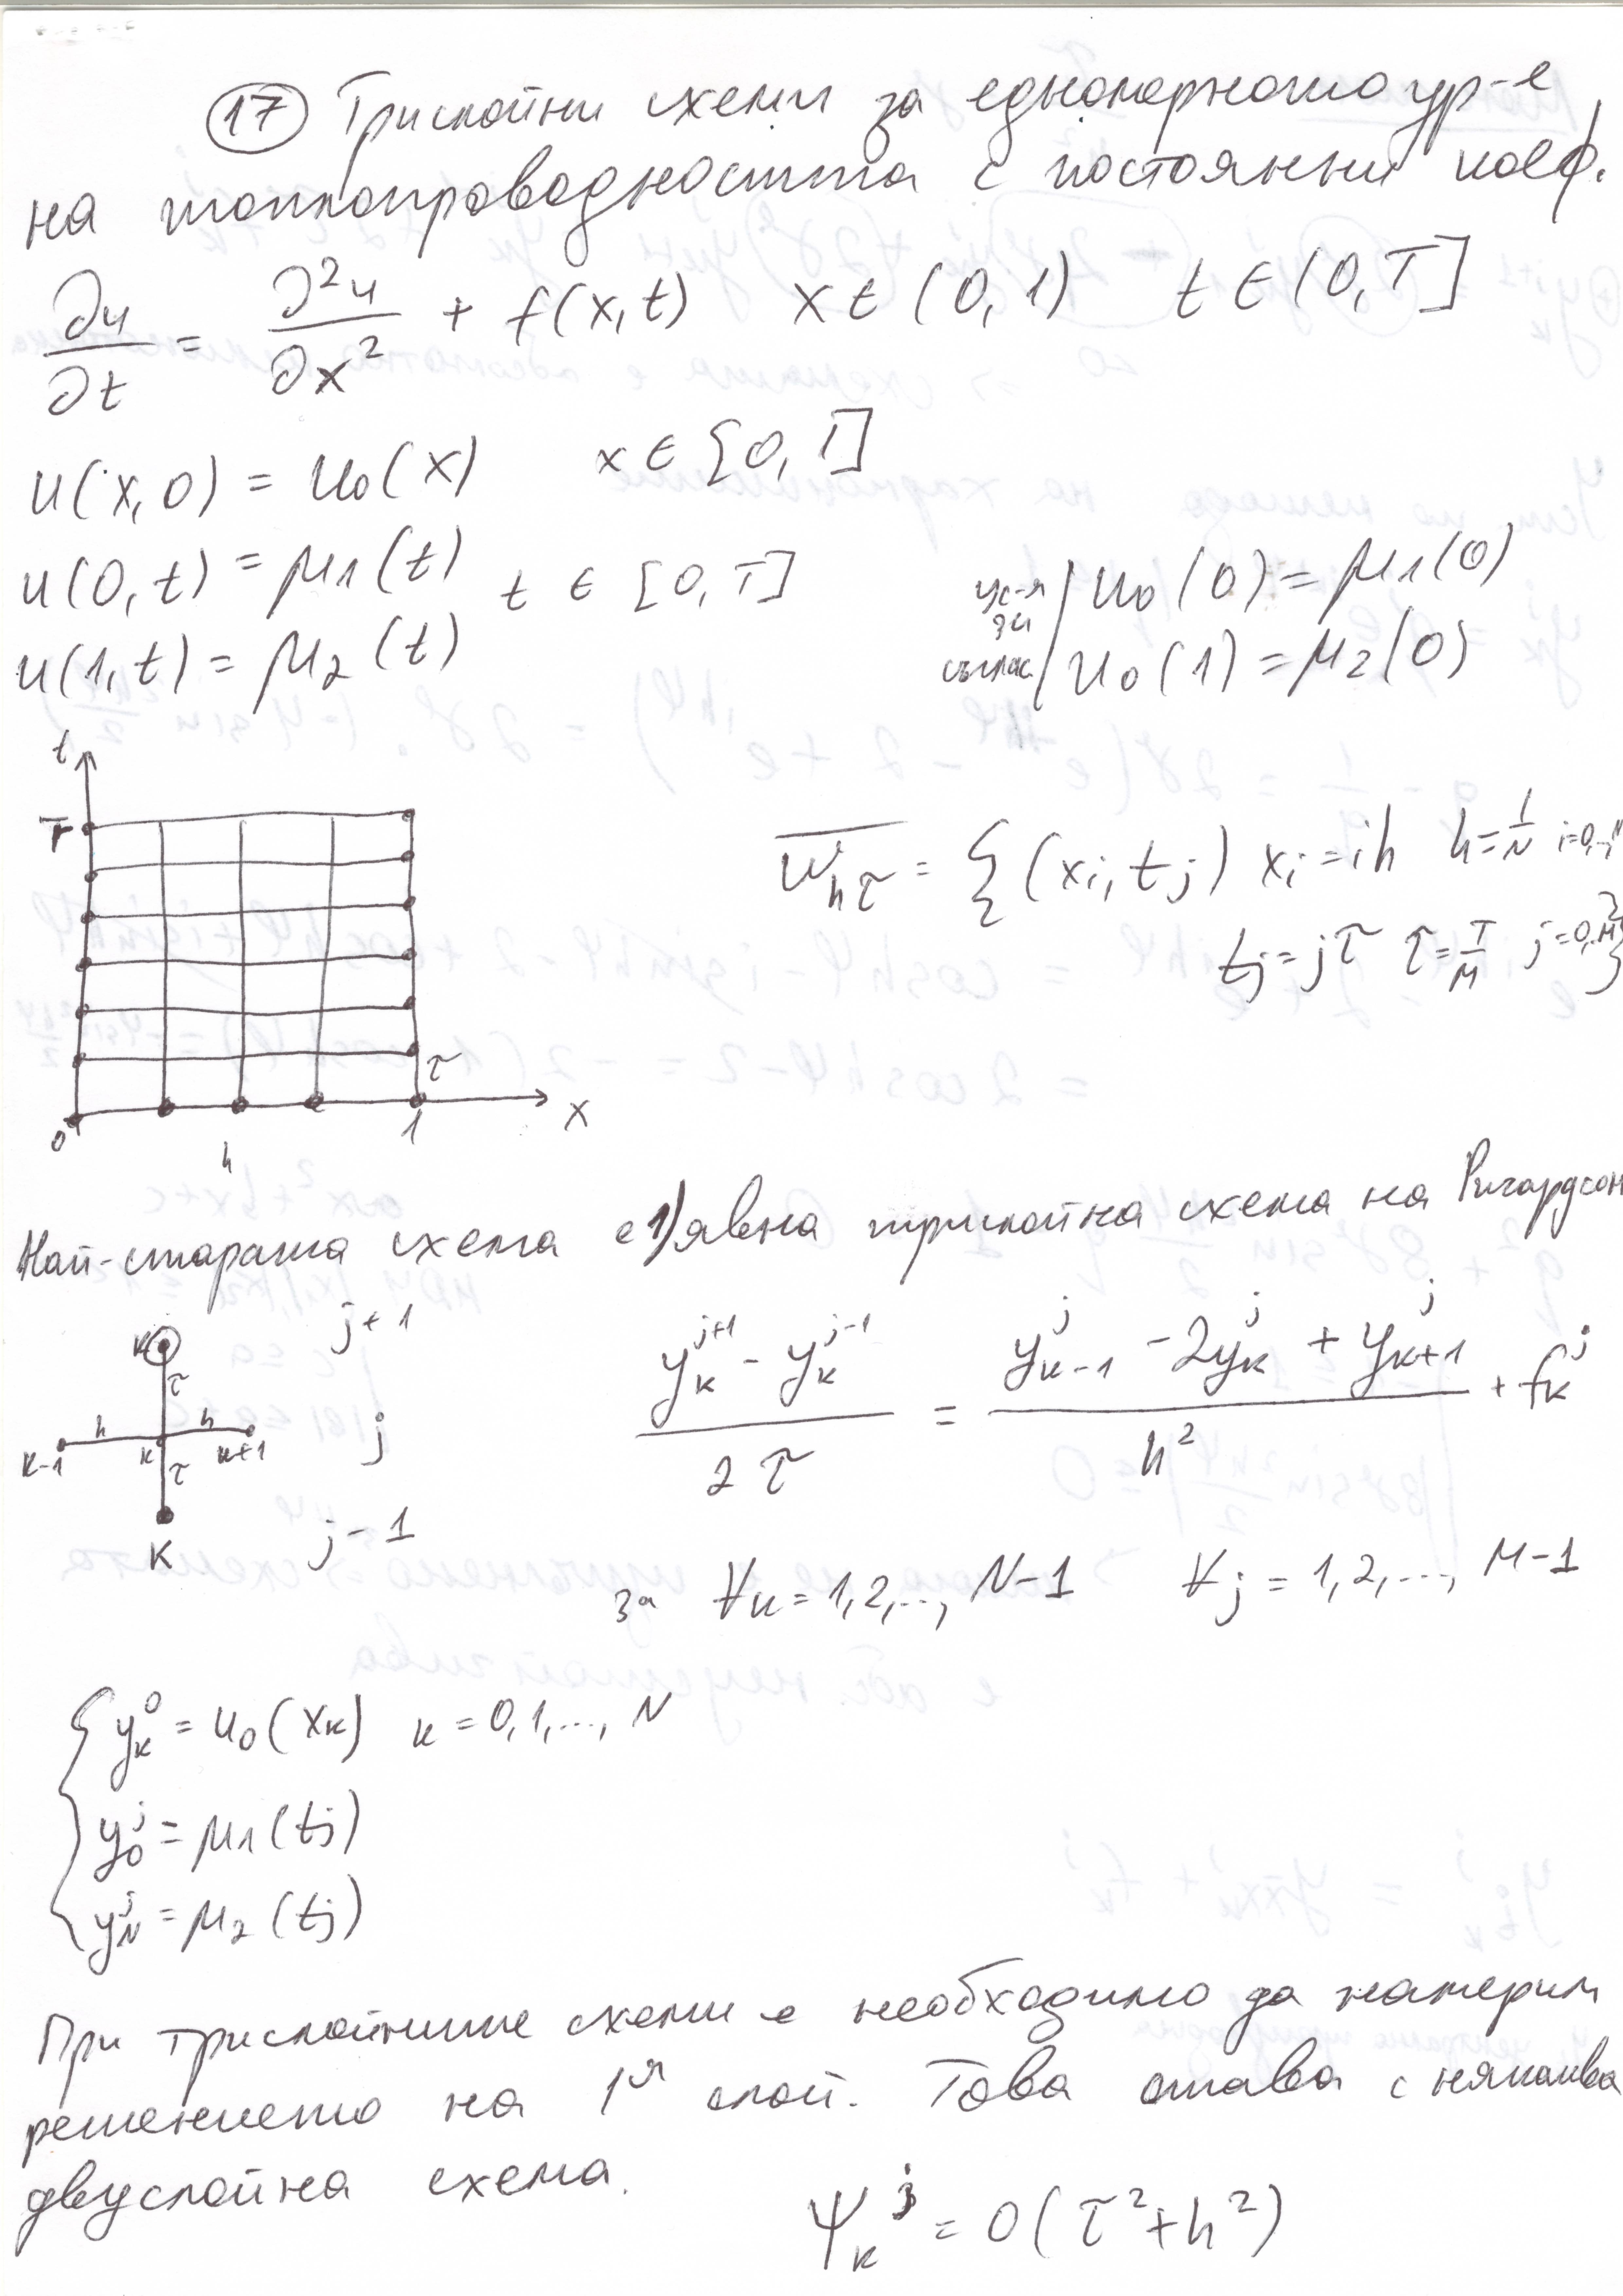 17 Трислойни схеми за едномерното ур-е
на топлопроводността с постоянни коеф.
∂u/∂t = ∂²u/∂x² + f(x,t) x ∈ (0,1) t ∈ (0,T]
u(x,0) = u₀(x) x ∈ [0,T]
u(0,t) = μ₁(t) t ∈ [0,T]
u(1,t) = μ₂(t)
ус-я за съглас. | u₀(0) = μ₁(0)
u₀(1) = μ₂(0)
t
T
τ
0 h 1 x
ω̅_hτ = {(xᵢ,tⱼ) xᵢ = ih h = 1/N i=0,..,N
tⱼ = jτ τ = T/M j=0,..M}
Най-старата схема е 1) явна трислойна схема на Ричардсон
k j+1
τ
h h
k-1 k k+1 j
τ
k j-1
(y_k^{j+1} - y_k^{j-1})/(2τ) = (y_{k-1}^j - 2y_k^j + y_{k+1}^j)/h² + f_k^j
за ∀k = 1,2,.., N-1 ∀j = 1,2,..., M-1
{ y_k^0 = u₀(x_k) k = 0,1,..., N
y_0^j = μ₁(tⱼ)
y_N^j = μ₂(tⱼ)
При трислойните схеми е необходимо да намерим
решението на 1я слой. Това става с някаква
двуслойна схема.
Ψ_k^j = O(τ²+h²)